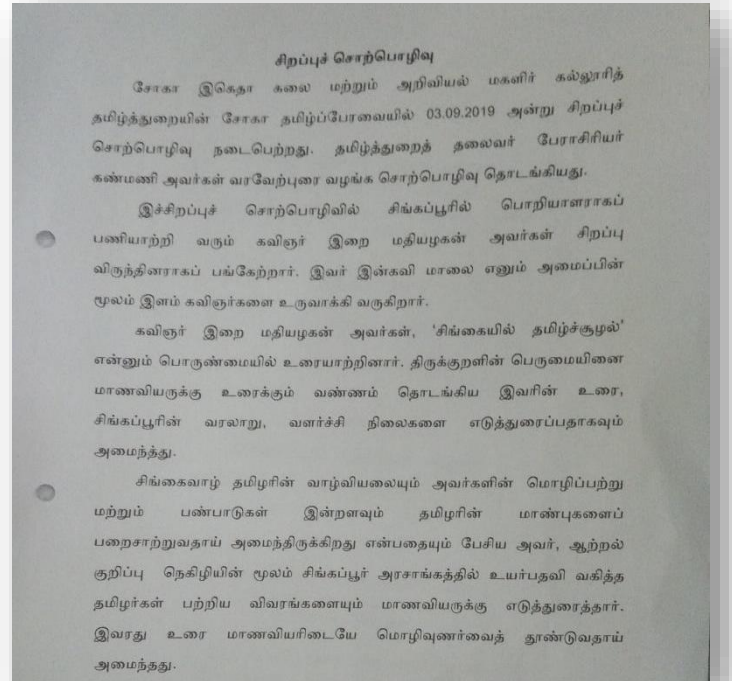 சிறப்புச் சொற்பொழிவு
சோகா இகெதா கலை மற்றும் அறிவியல் மகளிர் கல்லூரித்
தமிழ்த்துறையின் சோகா தமிழ்ப்பேரவையில் 03.09.2019 அன்று சிறப்புச்
சொற்பொழிவு நடைபெற்றது. தமிழ்த்துறைத் தலைவர் பேராசிரியர்
கண்மணி அவர்கள் வரவேற்புரை வழங்க சொற்பொழிவு தொடங்கியது.
இச்சிறப்புச் சொற்பொழிவில் சிங்கப்பூரில் பொறியாளராகப்
பணியாற்றி வரும் கவிஞர் இறை மதியழகன் அவர்கள் சிறப்பு
விருந்தினராகப் பங்கேற்றார். இவர் இன்கவி மாலை எனும் அமைப்பின்
மூலம் இளம் கவிஞர்களை உருவாக்கி வருகிறார்.
கவிஞர் இறை மதியழகன் அவர்கள், ‘சிங்கையில் தமிழ்ச்சூழல்’
என்னும் பொருண்மையில் உரையாற்றினார். திருக்குறளின் பெருமையினை
மாணவியருக்கு உரைக்கும் வண்ணம் தொடங்கிய இவரின் உரை,
சிங்கப்பூரின் வரலாறு, வளர்ச்சி நிலைகளை எடுத்துரைப்பதாகவும்
அமைந்த்து.
சிங்கைவாழ் தமிழரின் வாழ்வியலையும் அவர்களின் மொழிப்பற்று
மற்றும் பண்பாடுகள் இன்றளவும் தமிழரின் மாண்புகளைப்
பறைசாற்றுவதாய் அமைந்திருக்கிறது என்பதையும் பேசிய அவர், ஆற்றல்
குறிப்பு நெகிழியின் மூலம் சிங்கப்பூர் அரசாங்கத்தில் உயர்பதவி வகித்த
தமிழர்கள் பற்றிய விவரங்களையும் மாணவியருக்கு எடுத்துரைத்தார்.
இவரது உரை மாணவியரிடையே மொழிவுணர்வைத் தூண்டுவதாய்
அமைந்தது.